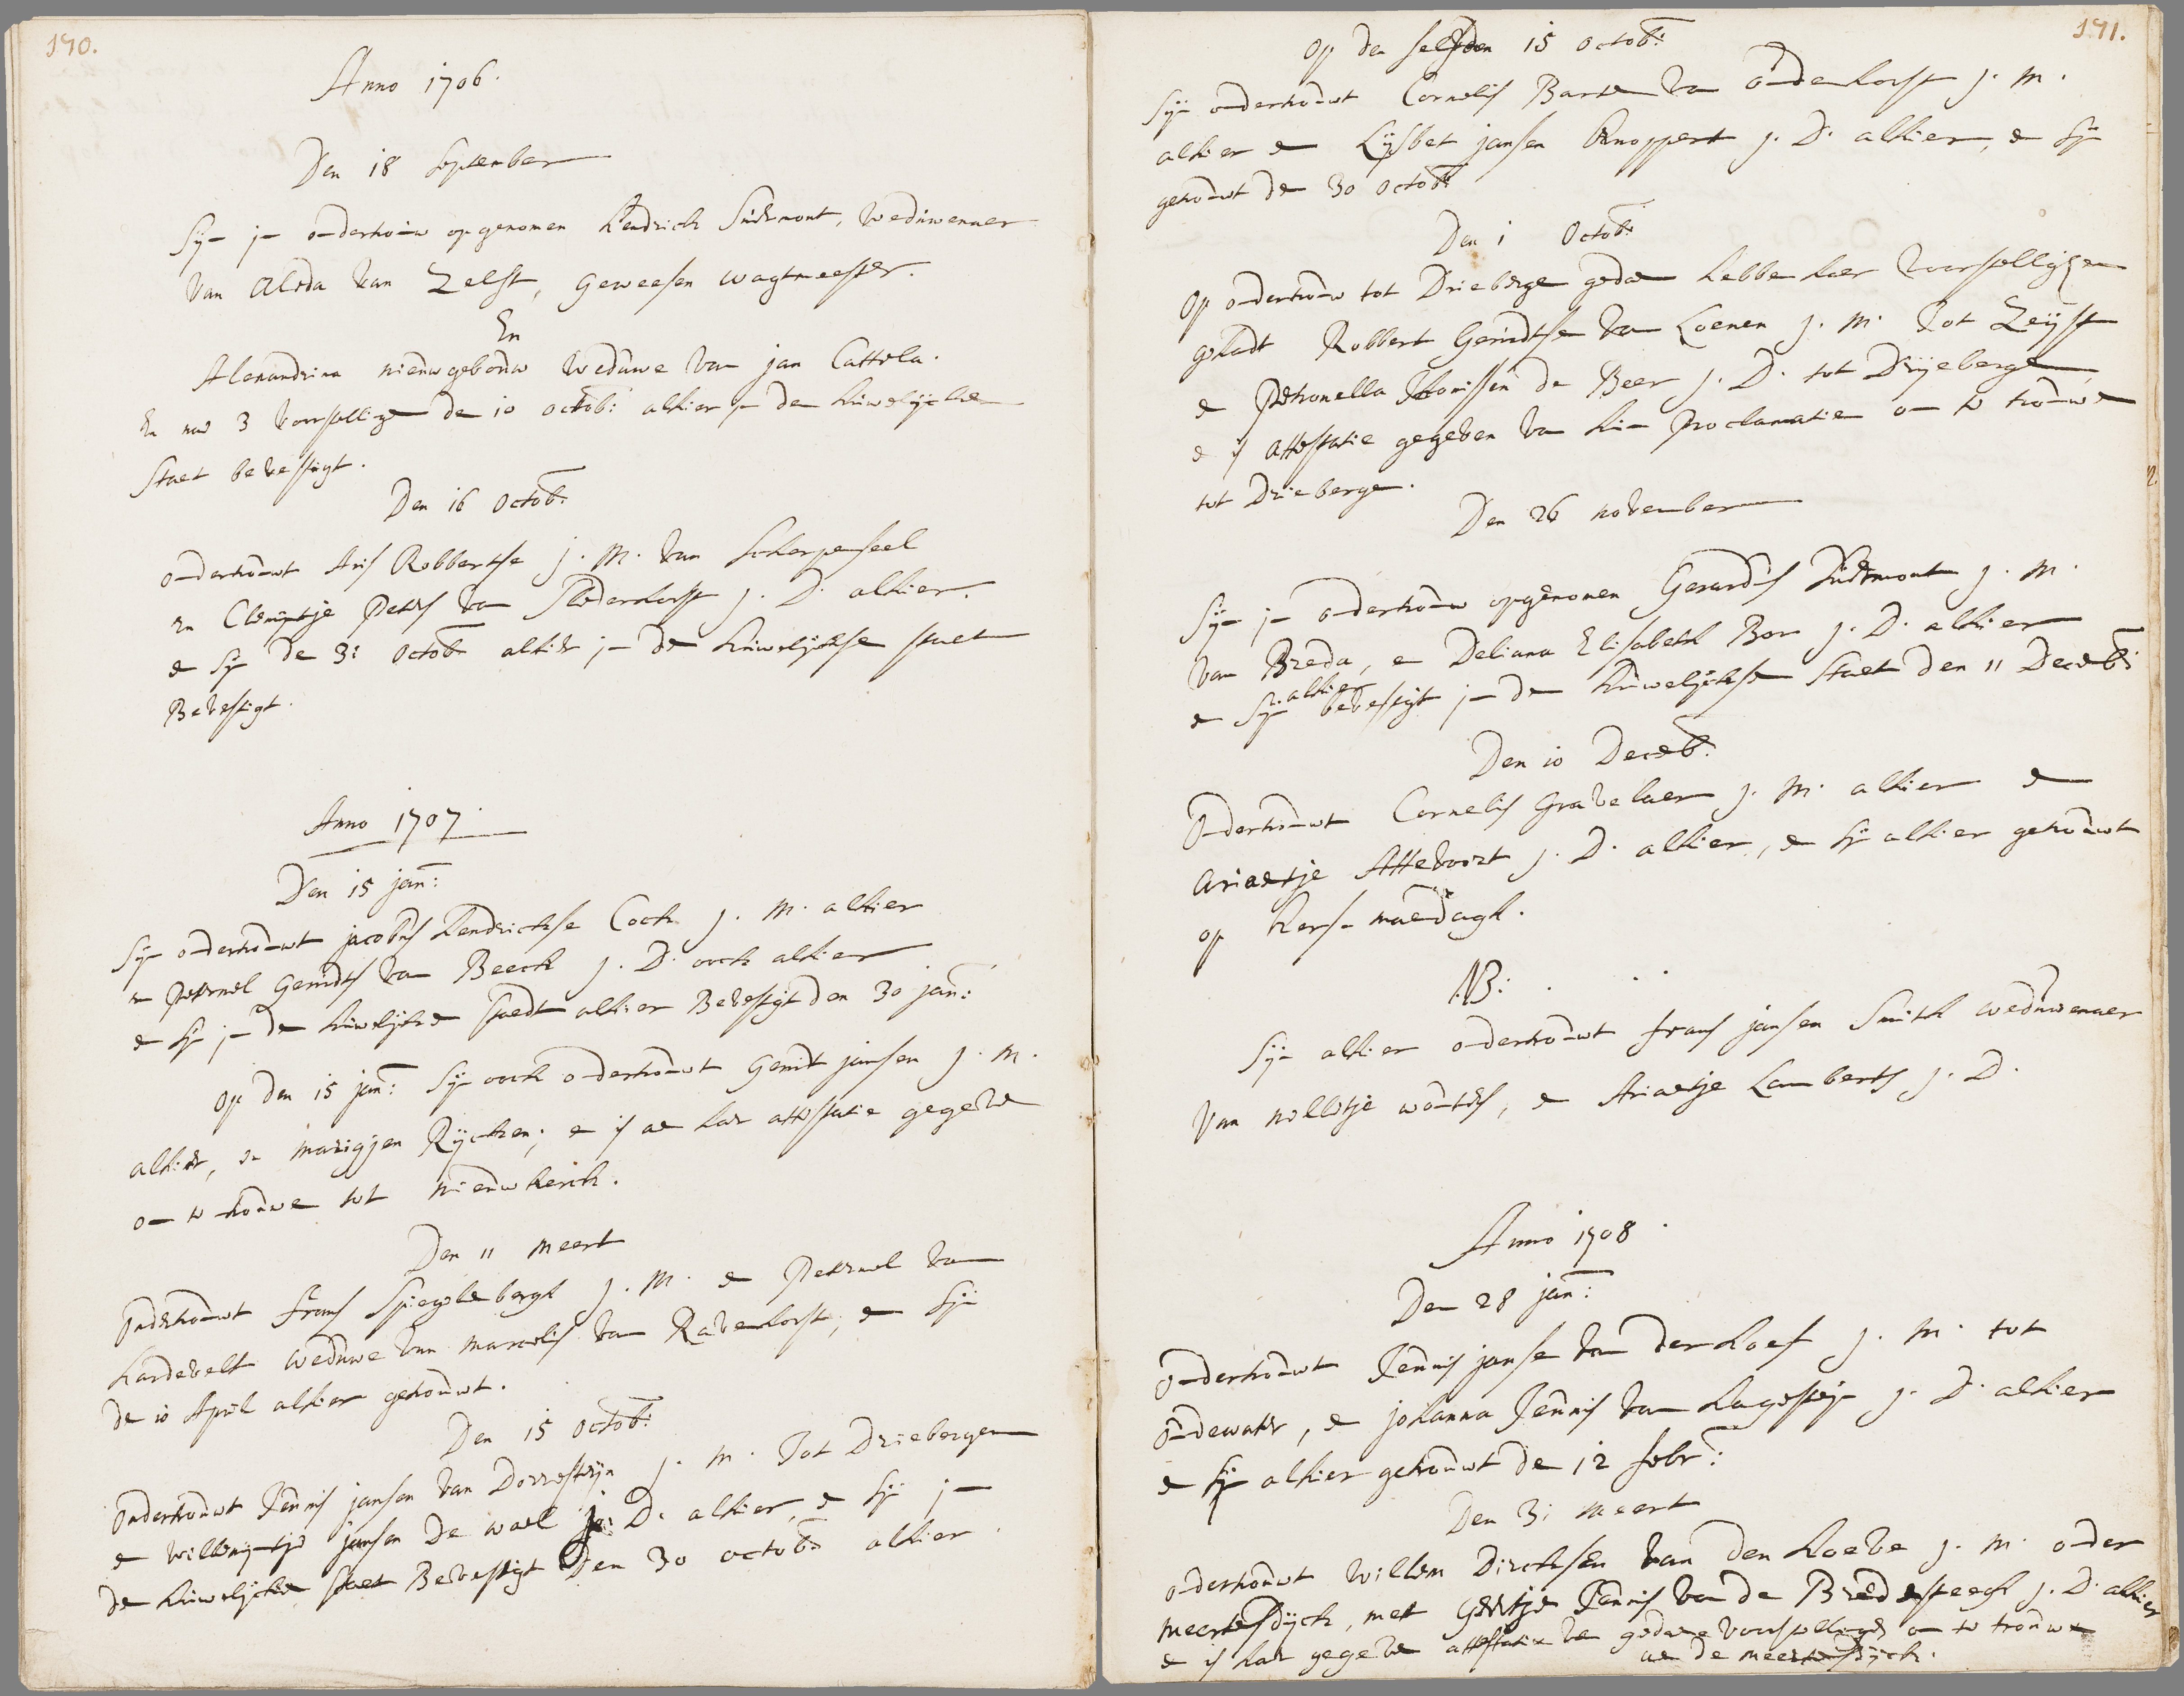 190.
Anno 1706.
Den 18 September
Sijn in ondertrouw opgenomen Hendrick Suermont, Weduwenaer
van Alida van Zelst, Geweesen wagtmeester.
En
Alexandrina nieuwgebouw Weduwe van jan Cattela.
En nae 3 voorstellige den 10 octob: alhier in den huwelijcken
Staet bevestigt.
Den 16 Octob:
ondertrouwt Aris Robbertse j. M. van Scherpenseel
en Clemintje Peters van Slederhorst j. D. alhier.
en sijn den 31 Octob: alhier in den huwelijckse staet
Bevestigt.
Anno 1707.
Den 15 jan:
Sijn ondertrouwt jacobus Hendrickse Cock j. M. alhier
en Peternel Gerridts van Beeck j. D. oock alhier
en sijn in den huwelijcken staedt alhier Bevestigt den 30 jan:
Op den 15 jan: Sijn oock ondertrouwt Gerridt jansen j. M.
alhier, en marigjen Rijcken; en is aen haer attestatie gegeven
om te trouwen tot nieuwkerck.
Den 11 Meert
Ondertrouwt frans Spiegelenbergh j. M. en Peternel van
Hardevelt weduwe van marcelis van Ravenhorst, en sijn
den 10 April alhier getrouwt.
Den 15 octob:
Ondertrouwt Teunis jansen van Dorrestijn j. M. Tot Driebergen
en willemijntje jansen De wael j. D. alhier, en sijn in
den huwelijcken staet Bevestigt Den 30 octob: alhier.
191.
Op den selfden 15 octob:
Sijn ondertrouwt Cornelis Barten van oudenhorst j. M.
alhier en Lijsbet jansen Knoppert j. D. alhier, en sijn
getrouwt den 30 octob:
Den 1 Octob:
Op ondertrouw tot Driebergen gedaen hebben haer voorstellijgen
gehadt Robbert Gerridtsen van Loenen j. M. Tot Zeijst
en Petronella Thonissen de Beer j. D. tot Drijebergen,
en is attestatie gegeven van hun Proclamatien om te trouwen
tot Driebergen.
Den 26 november
Sijn in ondertrouw opgenomen Gerardus Suermont j. M.
van Breda, en Deliana Elisabeth Bor j. D. alhier
en Sijn alhier bevestigt in den huwelijcksen Staet den 11 Decemb:
Den 10 Decemb:
Ondertrouwt Cornelis Gravelaer j. M. alhier en
Ariaentje Attevoort j. D. alhier, en sijn alhier getrouwt
op kers-maendagh.
NB:
Sijn alhier ondertrouwt frans jansen Smith weduwenaer
van nelletje wouters, en Ariaentje Lamberts j. D.
Anno 1708.
Den 28 jan:
ondertrouwt Teunis janse van der Hoef j. M. tot
oudewater, en johanna Teunis van Lagesteijn j. D. alhier
en sijn alhier getrouwt den 12 febr:
Den 31 Meert
ondertrouwt Willem Dircksen van den Hoeve j. M. onder
meertensdijck, met Geertje Teunis van de Bredesteegh j. D. alhier
en is haer gegeven attestatie van gedaene voorstellinge om te trouwen
aen de meertensdijck.